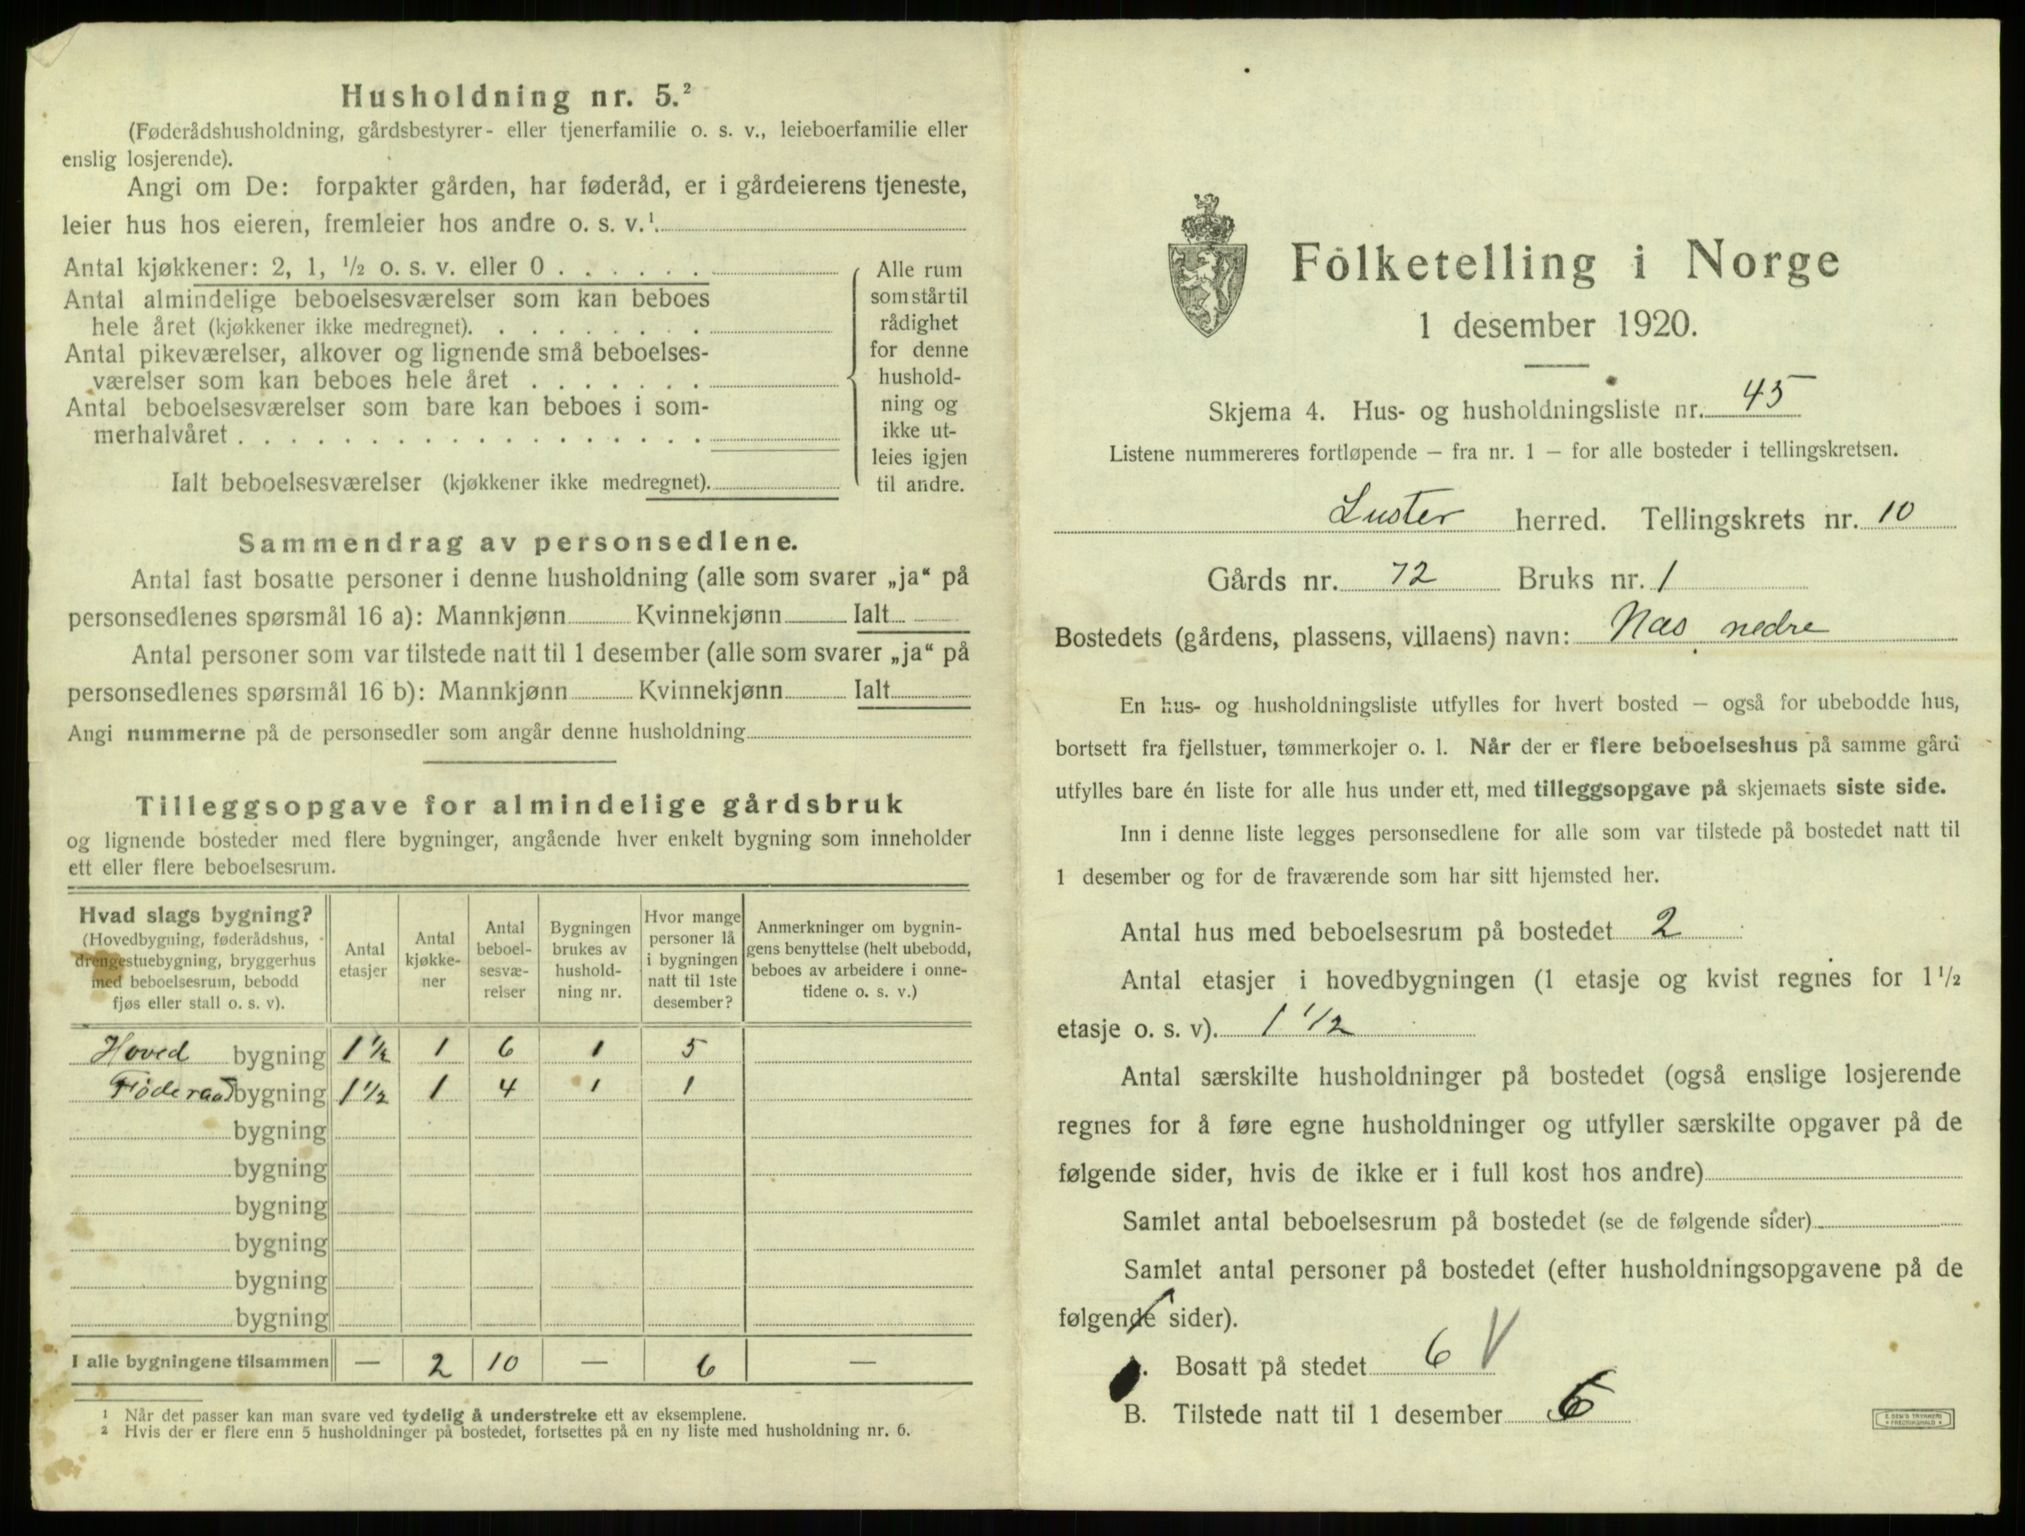 Husholdning nr. 5.²
(Føderådshusholdning, gårdsbestyrer- eller tjenerfamilie o. s. v., leieboerfamilie eller
enslig losjerende).
Angi om De: forpakter gården, har føderåd, er i gårdeierens tjeneste,
leier hus hos eieren, fremleier hos andre o. s. v.¹.
Antal kjøkkener: 2, 1, ¹/₂ o. s. v. eller 0 . . . . . .
Antal almindelige beboelsesværelser som kan beboes
hele året (kjøkkener ikke medregnet). . . . . . . . .
Antal pikeværelser, alkover og lignende små beboelses-
værelser som kan beboes hele året . . . . . . .
Antal beboelsesværelser som bare kan beboes i som-
merhalvåret . . . . . . . . . . . . . . . . . .
Ialt beboelsesværelser (kjøkkener ikke medregnet).
Alle rum
som står til
rådighet
for denne
hushold-
ning og
ikke ut-
leies igjen
til andre.
Sammendrag av personsedlene.
Antal fast bosatte personer i denne husholdning (alle som svarer „ja“ på
personsedlenes spørsmål 16 a): Mannkjønn Kvinnekjønn Ialt
Antal personer som var tilstede natt til 1 desember (alle som svarer „ja“ på
personsedlenes spørsmål 16 b): Mannkjønn Kvinnekjønn Ialt
Angi nummerne på de personsedler som angår denne husholdning
Tilleggsopgave for almindelige gårdsbruk
og lignende bosteder med flere bygninger, angående hver enkelt bygning som inneholder
ett eller flere beboelsesrum.
Hvad slags bygning?
(Hovedbygning, føderådshus,
drengestuebygning, bryggerhus
med beboelsesrum, bebodd
fjøs eller stall o. s. v).
Antal
etasjer
Antal
kjøkke-
ner
Antal
beboel-
sesvæ-
relser
Bygningen
brukes av
hushold-
ning nr.
Hvor mange
personer lå
i bygningen
natt til 1ste
desember?
Anmerkninger om bygnin-
gens benyttelse (helt ubebodd,
beboes av arbeidere i onne-
tidene o. s. v.)
Hoved bygning 1 ½ 1 6 1 5
Føderaad bygning 1 ½ 1 4 1 1
bygning
bygning
bygning
bygning
bygning
bygning
I alle bygningene tilsammen — 2 10 — 6 —
¹ Når det passer kan man svare ved tydelig å understreke ett av eksemplene.
² Hvis der er flere enn 5 husholdninger på bostedet, fortsettes på en ny liste med husholdning nr. 6.
Folketelling i Norge
1 desember 1920.
Skjema 4. Hus- og husholdningsliste nr. 45
Listene nummereres fortløpende – fra nr. 1 – for alle bosteder i tellingskretsen.
Luster herred. Tellingskrets nr. 10
Gårds nr. 72 Bruks nr. 1
Bostedets (gårdens, plassens, villaens) navn: Næs nedre
En hus- og husholdningsliste utfylles for hvert bosted – også for ubebodde hus,
bortsett fra fjellstuer, tømmerkojer o. l. Når der er flere beboelseshus på samme gård
utfylles bare én liste for alle hus under ett, med tilleggsopgave på skjemaets siste side.
Inn i denne liste legges personsedlene for alle som var tilstede på bostedet natt til
1 desember og for de fraværende som har sitt hjemsted her.
Antal hus med beboelsesrum på bostedet 2
Antal etasjer i hovedbygningen (1 etasje og kvist regnes for 1 ¹/₂
etasje o. s. v). 1 ½
Antal særskilte husholdninger på bostedet (også enslige losjerende
regnes for å føre egne husholdninger og utfyller særskilte opgaver på de
følgende sider, hvis de ikke er i full kost hos andre)
Samlet antal beboelsesrum på bostedet (se de følgende sider)
Samlet antal personer på bostedet (efter husholdningsopgavene på de
følgende sider).
Bosatt på stedet 6 V
B. Tilstede natt til 1 desember 6